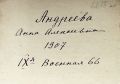 Андреева
Анна Алексеевна
1907
IXя Военная 66